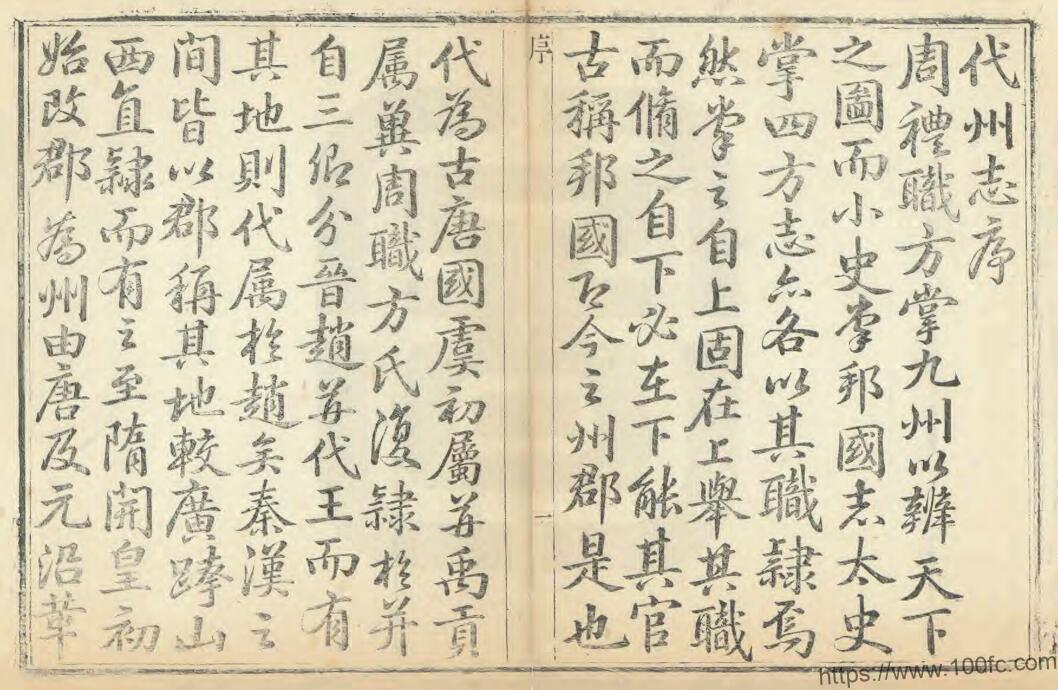 代州志序
周禮職方掌九州以辨天下
之圖而小史掌邦國志太史
掌四方志亦各以其職隸焉
然掌之自上固在上舉其職
而脩之自下必在下能其官
古稱邦國乃今之州郡是也
序
一
代為古唐國虞初屬并禹貢
属冀周職方氏復隸於并
自三卿分晉趙并代王而有
其地則代属於趙矣秦漢之
間皆以郡稱其地較廣跨山
西直隸而有之至隋開皇初
始改郡為州由唐及元沿革
https://www.100fc.com